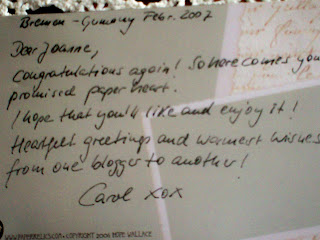 Bremen - Germany Febr. 2007
Dear Joanne,
congratulations again! So here comes you
promised paper heart.
I hope that you'll like and enjoy it!
Heartfelt greetings and warmest wishes
from one blogger to another!
Carol xox
WWW.PAPERRELICS.COM - COPYRIGHT 2006 HOPE WALLACE